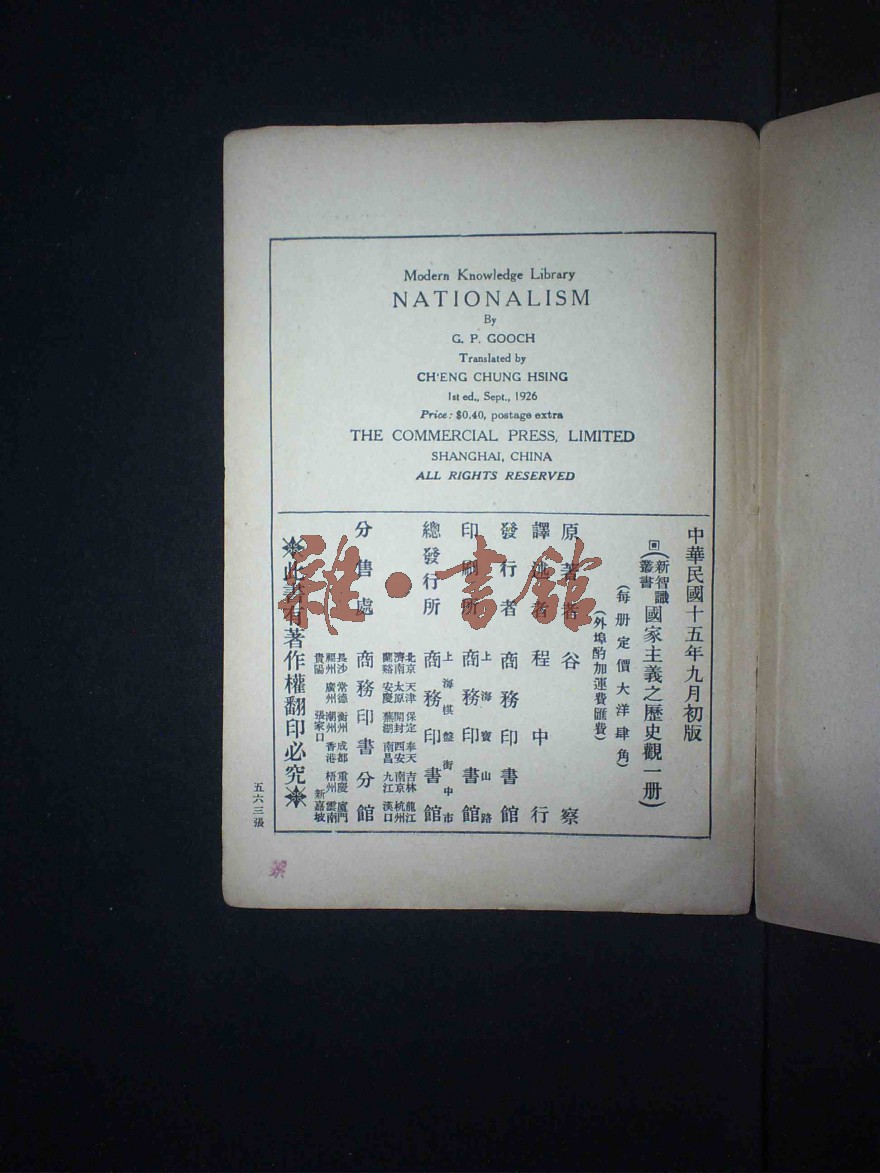 Modern Knowledge Library
NATIONALISM
By
G. P. GOOCH
Translated by
CH'ENG CHUNG HSING
1st ed., Sept., 1926
Price: $0.40, postage extra
THE COMMERCIAL PRESS, LIMITED
SHANGHAI, CHINA
ALL RIGHTS RESERVED
中華民國十五年九月初版
新智識叢書
(國家主義之歷史觀一册)
(每册定價大洋肆角)
(外埠酌加運費匯費)
原著者 谷察
譯述者 程中行
發行者 商務印書館
印刷所 上海寶山路 商務印書館
總發行所 上海棋盤街中市 商務印書館
分售處 商務印書分館
北京 天津 保定 奉天 吉林 龍江
濟南 太原 開封 西安 南京 杭州
蘭谿 安慶 蕪湖 南昌 九江 漢口
長沙 常德 衡州 成都 重慶 廈門
福州 廣州 潮州 香港 梧州 雲南
貴陽 張家口 新嘉坡
此書有著作權翻印必究
五六三張
雜·書館